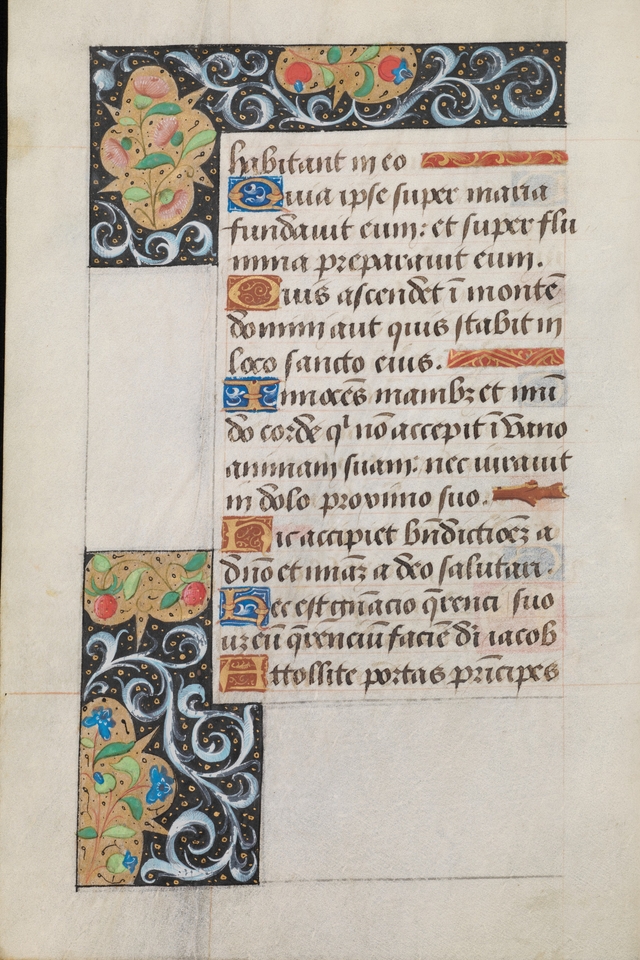 habitant in eo
Quia ipse super maria
fundauit eum: et super flu
mina preparauit eum.
Quis ascendet ī montē
domini aut quis stabit in
loco sancto eius.
Innocēs manibꝫ et mū
do corde qͥ nō accepit ī vano
animam suam: nec iurauit
in dolo proximo suo.
Hic accipiet bn̄dictioēꝫ a
dn̄o et miāꝫ a deo salutari.
Hec est gn̄acio q̄renciū
uꝫ eū q̄renciū faciē di iacob
Attollite portas prīcipes